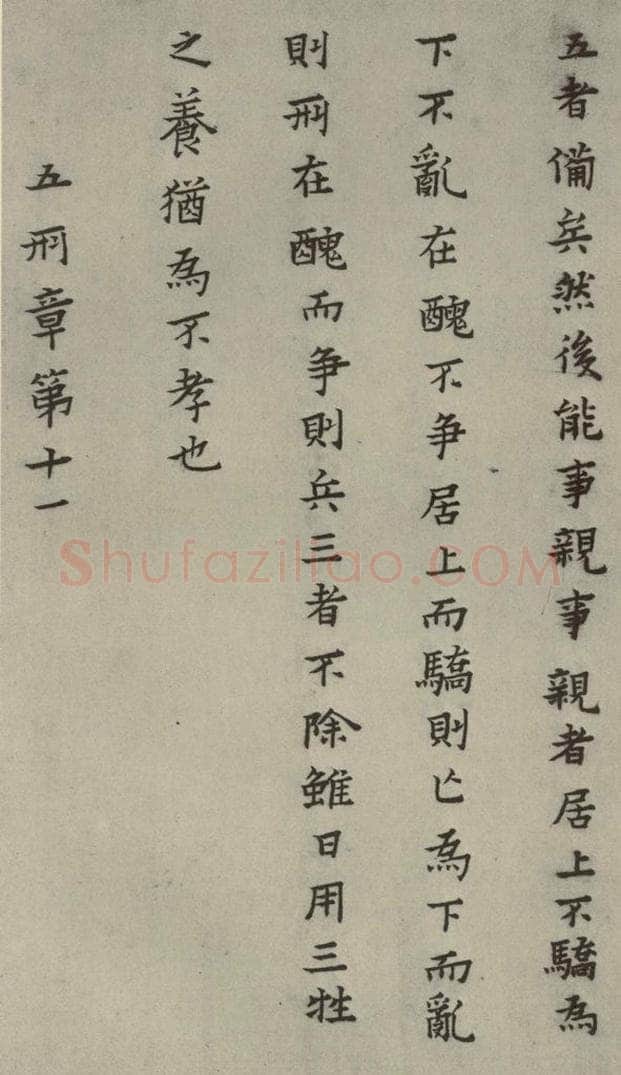 五者備矣然後能事親事親者居上不驕為
下不亂在醜不争居上而驕則亡為下而亂
則刑在醜而争則兵三者不除雖日用三牲
之養猶為不孝也
五刑章第十一
Shufaziliao.COM